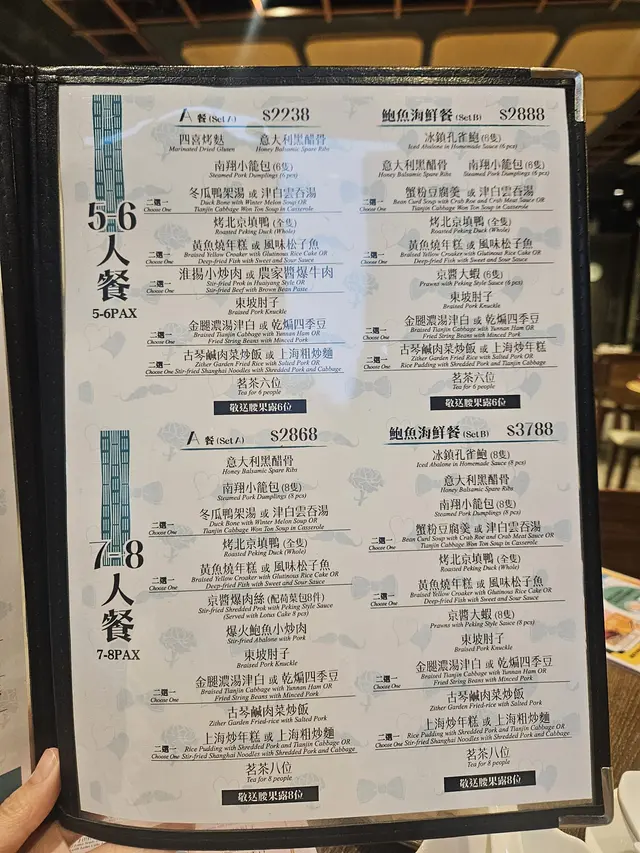 5-6
人
餐
5-6PAX
A 餐 (Set A) $2238
四喜烤麩 意大利黑醋骨
Marinated Dried Gluten Honey Balsamic Spare Ribs
南翔小籠包 (6隻)
Steamed Pork Dumplings (6 pcs)
二選一 冬瓜鴨架湯 或 津白雲吞湯
Choose One Duck Bone with Winter Melon Soup OR
Tianjin Cabbage Won Ton Soup in Casserole
烤北京填鴨 (全隻)
Roasted Peking Duck (Whole)
二選一 黃魚燒年糕 或 風味松子魚
Choose One Braised Yellow Croaker with Glutinous Rice Cake OR
Deep-fried Fish with Sweet and Sour Sauce
二選一 淮揚小炒肉 或 農家醬爆牛肉
Choose One Stir-fried Prok in Huaiyang Style OR
Stir-fried Beef with Brown Bean Paste
東坡肘子
Braised Pork Knuckle
二選一 金腿濃湯津白 或 乾煸四季豆
Choose One Braised Tianjin Cabbage with Yunnan Ham OR
Fried String Beans with Minced Pork
二選一 古琴鹹肉菜炒飯 或 上海粗炒麵
Zither Garden Fried Rice with Salted Pork OR
Choose One Stir-fried Shanghai Noodles with Shredded Pork and Cabbage
茗茶六位
Tea for 6 people
敬送腰果露6位
鮑魚海鮮餐 (Set B) $2888
冰鎮孔雀鮑 (6隻)
Iced Abalone in Homemade Sauce (6 pcs)
意大利黑醋骨 南翔小籠包 (6隻)
Honey Balsamic Spare Ribs Steamed Pork Dumplings (6 pcs)
二選一 蟹粉豆腐羹 或 津白雲吞湯
Choose One Bean Curd Soup with Crab Roe and Crab Meat Sauce OR
Tianjin Cabbage Won Ton Soup in Casserole
烤北京填鴨 (全隻)
Roasted Peking Duck (Whole)
二選一 黃魚燒年糕 或 風味松子魚
Choose One Braised Yellow Croaker with Glutinous Rice Cake OR
Deep-fried Fish with Sweet and Sour Sauce
京醬大蝦 (6隻)
Prawns with Peking Style Sauce (6 pcs)
東坡肘子
Braised Pork Knuckle
二選一 金腿濃湯津白 或 乾煸四季豆
Choose One Braised Tianjin Cabbage with Yunnan Ham OR
Fried String Beans with Minced Pork
二選一 古琴鹹肉菜炒飯 或 上海炒年糕
Choose One Zither Garden Fried Rice with Salted Pork OR
Rice Pudding with Shredded Pork and Tianjin Cabbage
茗茶六位
Tea for 6 people
敬送腰果露6位
7-8
人
餐
7-8PAX
A 餐 (Set A) $2868
意大利黑醋骨
Honey Balsamic Spare Ribs
南翔小籠包 (8隻)
Steamed Pork Dumplings (8 pcs)
二選一 冬瓜鴨架湯 或 津白雲吞湯
Choose One Duck Bone with Winter Melon Soup OR
Tianjin Cabbage Won Ton Soup in Casserole
烤北京填鴨 (全隻)
Roasted Peking Duck (Whole)
二選一 黃魚燒年糕 或 風味松子魚
Choose One Braised Yellow Croaker with Glutinous Rice Cake OR
Deep-fried Fish with Sweet and Sour Sauce
京醬爆肉絲 (配荷葉包8件)
Stir-fried Shredded Prok with Peking Style Sauce
(Served with Lotus Cake 8 pcs)
爆火鮑魚小炒肉
Stir-fried Abalone with Pork
東坡肘子
Braised Pork Knuckle
二選一 金腿濃湯津白 或 乾煸四季豆
Choose One Braised Tianjin Cabbage with Yunnan Ham OR
Fried String Beans with Minced Pork
古琴鹹肉菜炒飯
Zither Garden Fried-rice with Salted Pork
二選一 上海炒年糕 或 上海粗炒麵
Rice Pudding with Shredded Pork and Tianjin Cabbage OR
Choose One Stir-fried Shanghai Noodles with Shredded Pork and Cabbage
茗茶八位
Tea for 8 people
敬送腰果露8位
鮑魚海鮮餐 (Set B) $3788
冰鎮孔雀鮑 (8隻)
Iced Abalone in Homemade Sauce (8 pcs)
意大利黑醋骨
Honey Balsamic Spare Ribs
南翔小籠包 (8隻)
Steamed Pork Dumplings (8 pcs)
二選一 蟹粉豆腐羹 或 津白雲吞湯
Choose One Bean Curd Soup with Crab Roe and Crab Meat Sauce OR
Tianjin Cabbage Won Ton Soup in Casserole
烤北京填鴨 (全隻)
Roasted Peking Duck (Whole)
二選一 黃魚燒年糕 或 風味松子魚
Choose One Braised Yellow Croaker with Glutinous Rice Cake OR
Deep-fried Fish with Sweet and Sour Sauce
京醬大蝦 (8隻)
Prawns with Peking Style Sauce (8 pcs)
東坡肘子
Braised Pork Knuckle
二選一 金腿濃湯津白 或 乾煸四季豆
Choose One Braised Tianjin Cabbage with Yunnan Ham OR
Fried String Beans with Minced Pork
古琴鹹肉菜炒飯
Zither Garden Fried-rice with Salted Pork
二選一 上海炒年糕 或 上海粗炒麵
Rice Pudding with Shredded Pork and Tianjin Cabbage OR
Choose One Stir-fried Shanghai Noodles with Shredded Pork and Cabbage
茗茶八位
Tea for 8 people
敬送腰果露8位